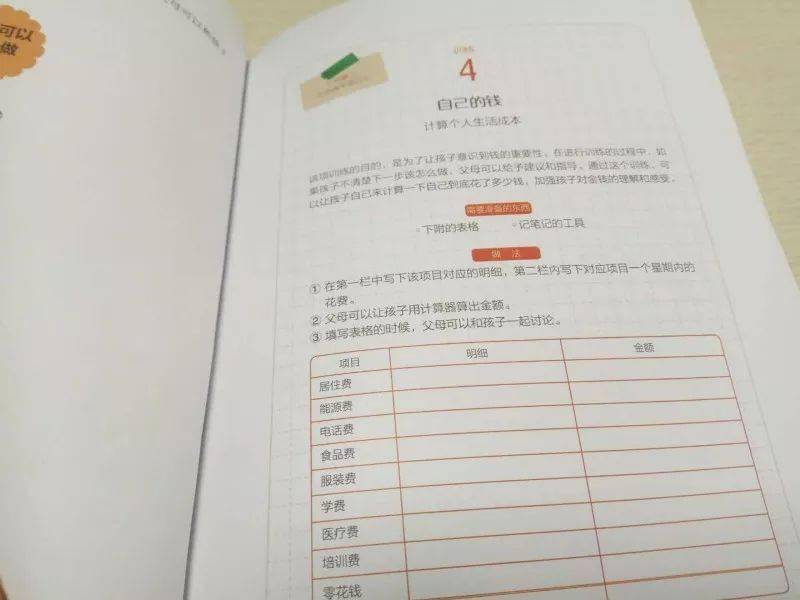 可以
做
训练
4
自己的钱
计算个人生活成本
该项训练的目的，是为了让孩子意识到钱的重要性。在进行训练的过程中，如
果孩子不清楚下一步该怎么做，父母可以给予建议和指导。通过这个训练，可
以让孩子自己来计算一下自己到底花了多少钱，加强孩子对金钱的理解和感受。
需要准备的东西
◦下附的表格 ◦记笔记的工具
做 法
① 在第一栏中写下该项目对应的明细，第二栏内写下对应项目一个星期内的
花费。
② 父母可以让孩子用计算器算出金额。
③ 填写表格的时候，父母可以和孩子一起讨论。
项目 明细 金额
居住费
能源费
电话费
食品费
服装费
学费
医疗费
培训费
零花钱